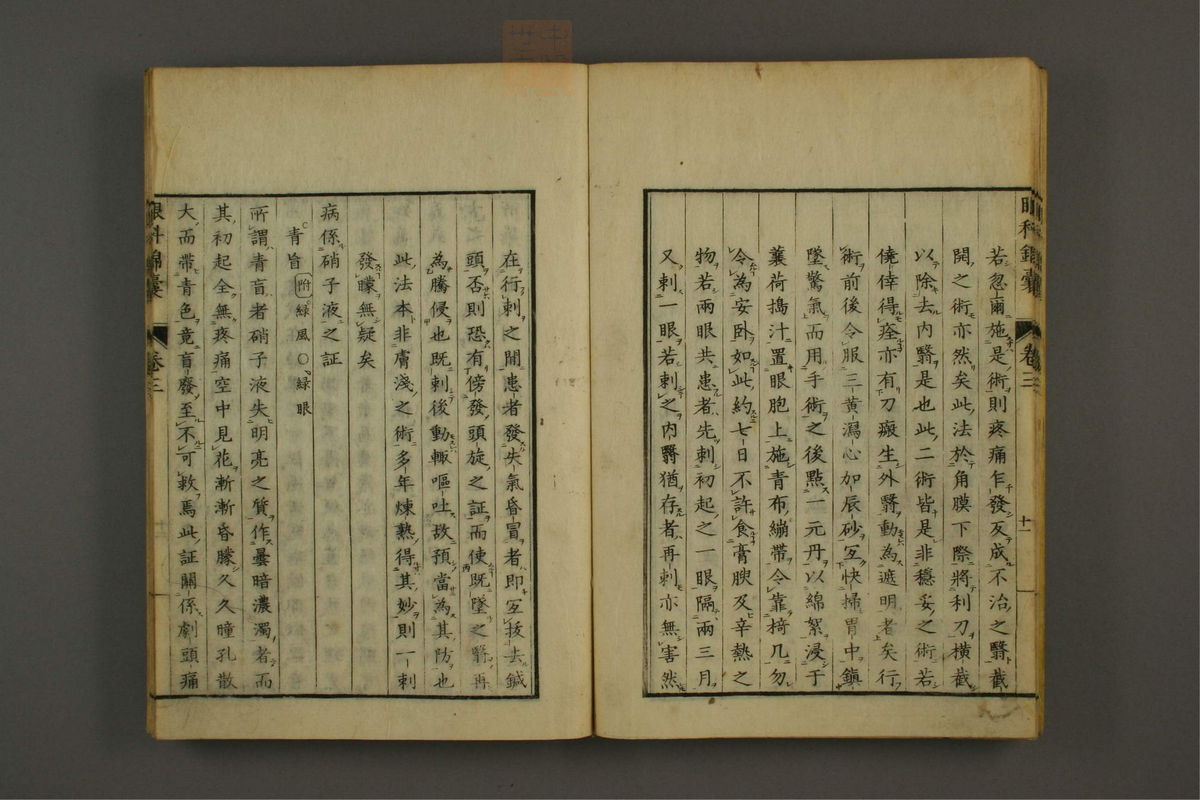 眼科錦囊 卷三 十一
若忽爾施是術則疼痛乍發反成不治之翳截
開之術亦然矣此法於角膜下際將利刀橫截
以除去内翳是也此二術皆是非穩妥之術若
僥倖得痊亦有刀瘢生外翳動為遮明者矣行
術前後令服三黃瀉心加辰砂宜快掃胃中鎭
墜驚氣而用手術之後點一元丹以綿絮浸于
蘘荷搗汁置眼胞上施青布繃帶令靠椅几勿
令為安卧如此約七日不許食膏腴及辛熱之
物若兩眼共患者先刺初起之一眼隔兩三月
又刺一眼若刺之内翳猶存者再刺亦無害然
在行刺之間患者發失氣昏冒者即宜拔去鍼
頭否則恐有傍發頭旋之証而使既墜之翳再
為騰侵也既刺後動輙嘔吐故預當為其防也
此法本非膚淺之術多年煉熟得其妙則一刺
發矇無疑矣
病係硝子液之証
青盲 附綠風○綠眼
所謂青盲者硝子液失明亮之質作曇暗濃濁者而
其初起全無疼痛空中見花漸漸昏矇久久瞳孔散
大而帶青色竟盲廢至不可救焉此証關係劇頭痛
眼科錦囊 卷三